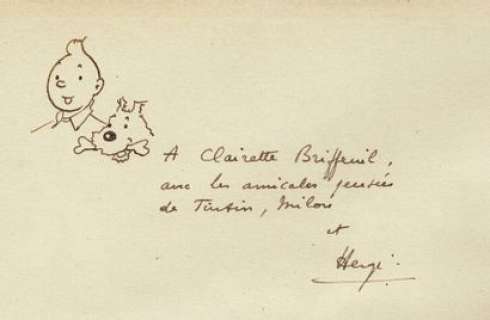 A Clairette Briffeuil,
avec les amicales pensées
de Tintin, Milou
et
Hergé.